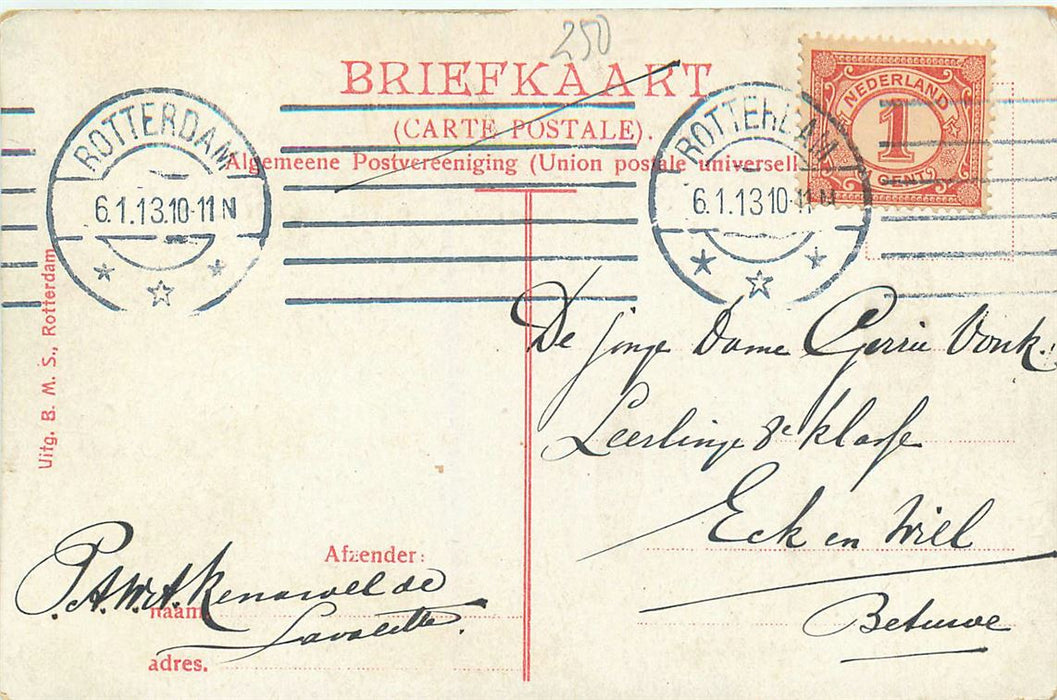 250
BRIEFKAART
(CARTE POSTALE).
Algemeene Postvereeniging (Union postale universelle
NEDERLAND
1
1 CENT
ROTTERDAM
6.1.13.10-11 N
ROTTERDAM
6.1.13 10-11 N
Uitg. B. M. S., Rotterdam
De jonge Dame Gerrie Vonk.
Leerlinge 8e klasse
Eck en Wiel
Betuwe
Afzender:
P.A.W.A.
Lavalette.
naam
adres.